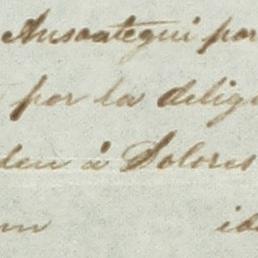 Ansoategui por
por la dilig
den á Dolores